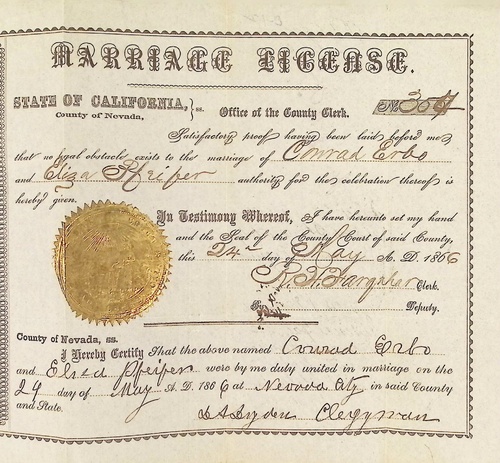 MARRIAGE LICENSE.
STATE OF CALIFORNIA, } ss.
County of Nevada,
Office of the County Clerk.
No. 304
Satisfactory proof having been laid before me
that no legal obstacle exists to the marriage of Conrad Erbo
and Eliza Pfeifer authority for the celebration thereof is
hereby given.
In Testimony Whereof, I have hereunto set my hand
and the Seal of the County Court of said County,
this 24 day of May A. D. 1866
R. H. Farquhar Clerk.
By Deputy.
County of Nevada, ss.
I Hereby Certify That the above named Conrad Erbo
and Eliza Pfeifer were by me duly united in marriage on the
24 day of May A. D. 1866 at Nevada City in said County
and State.
Clergyman